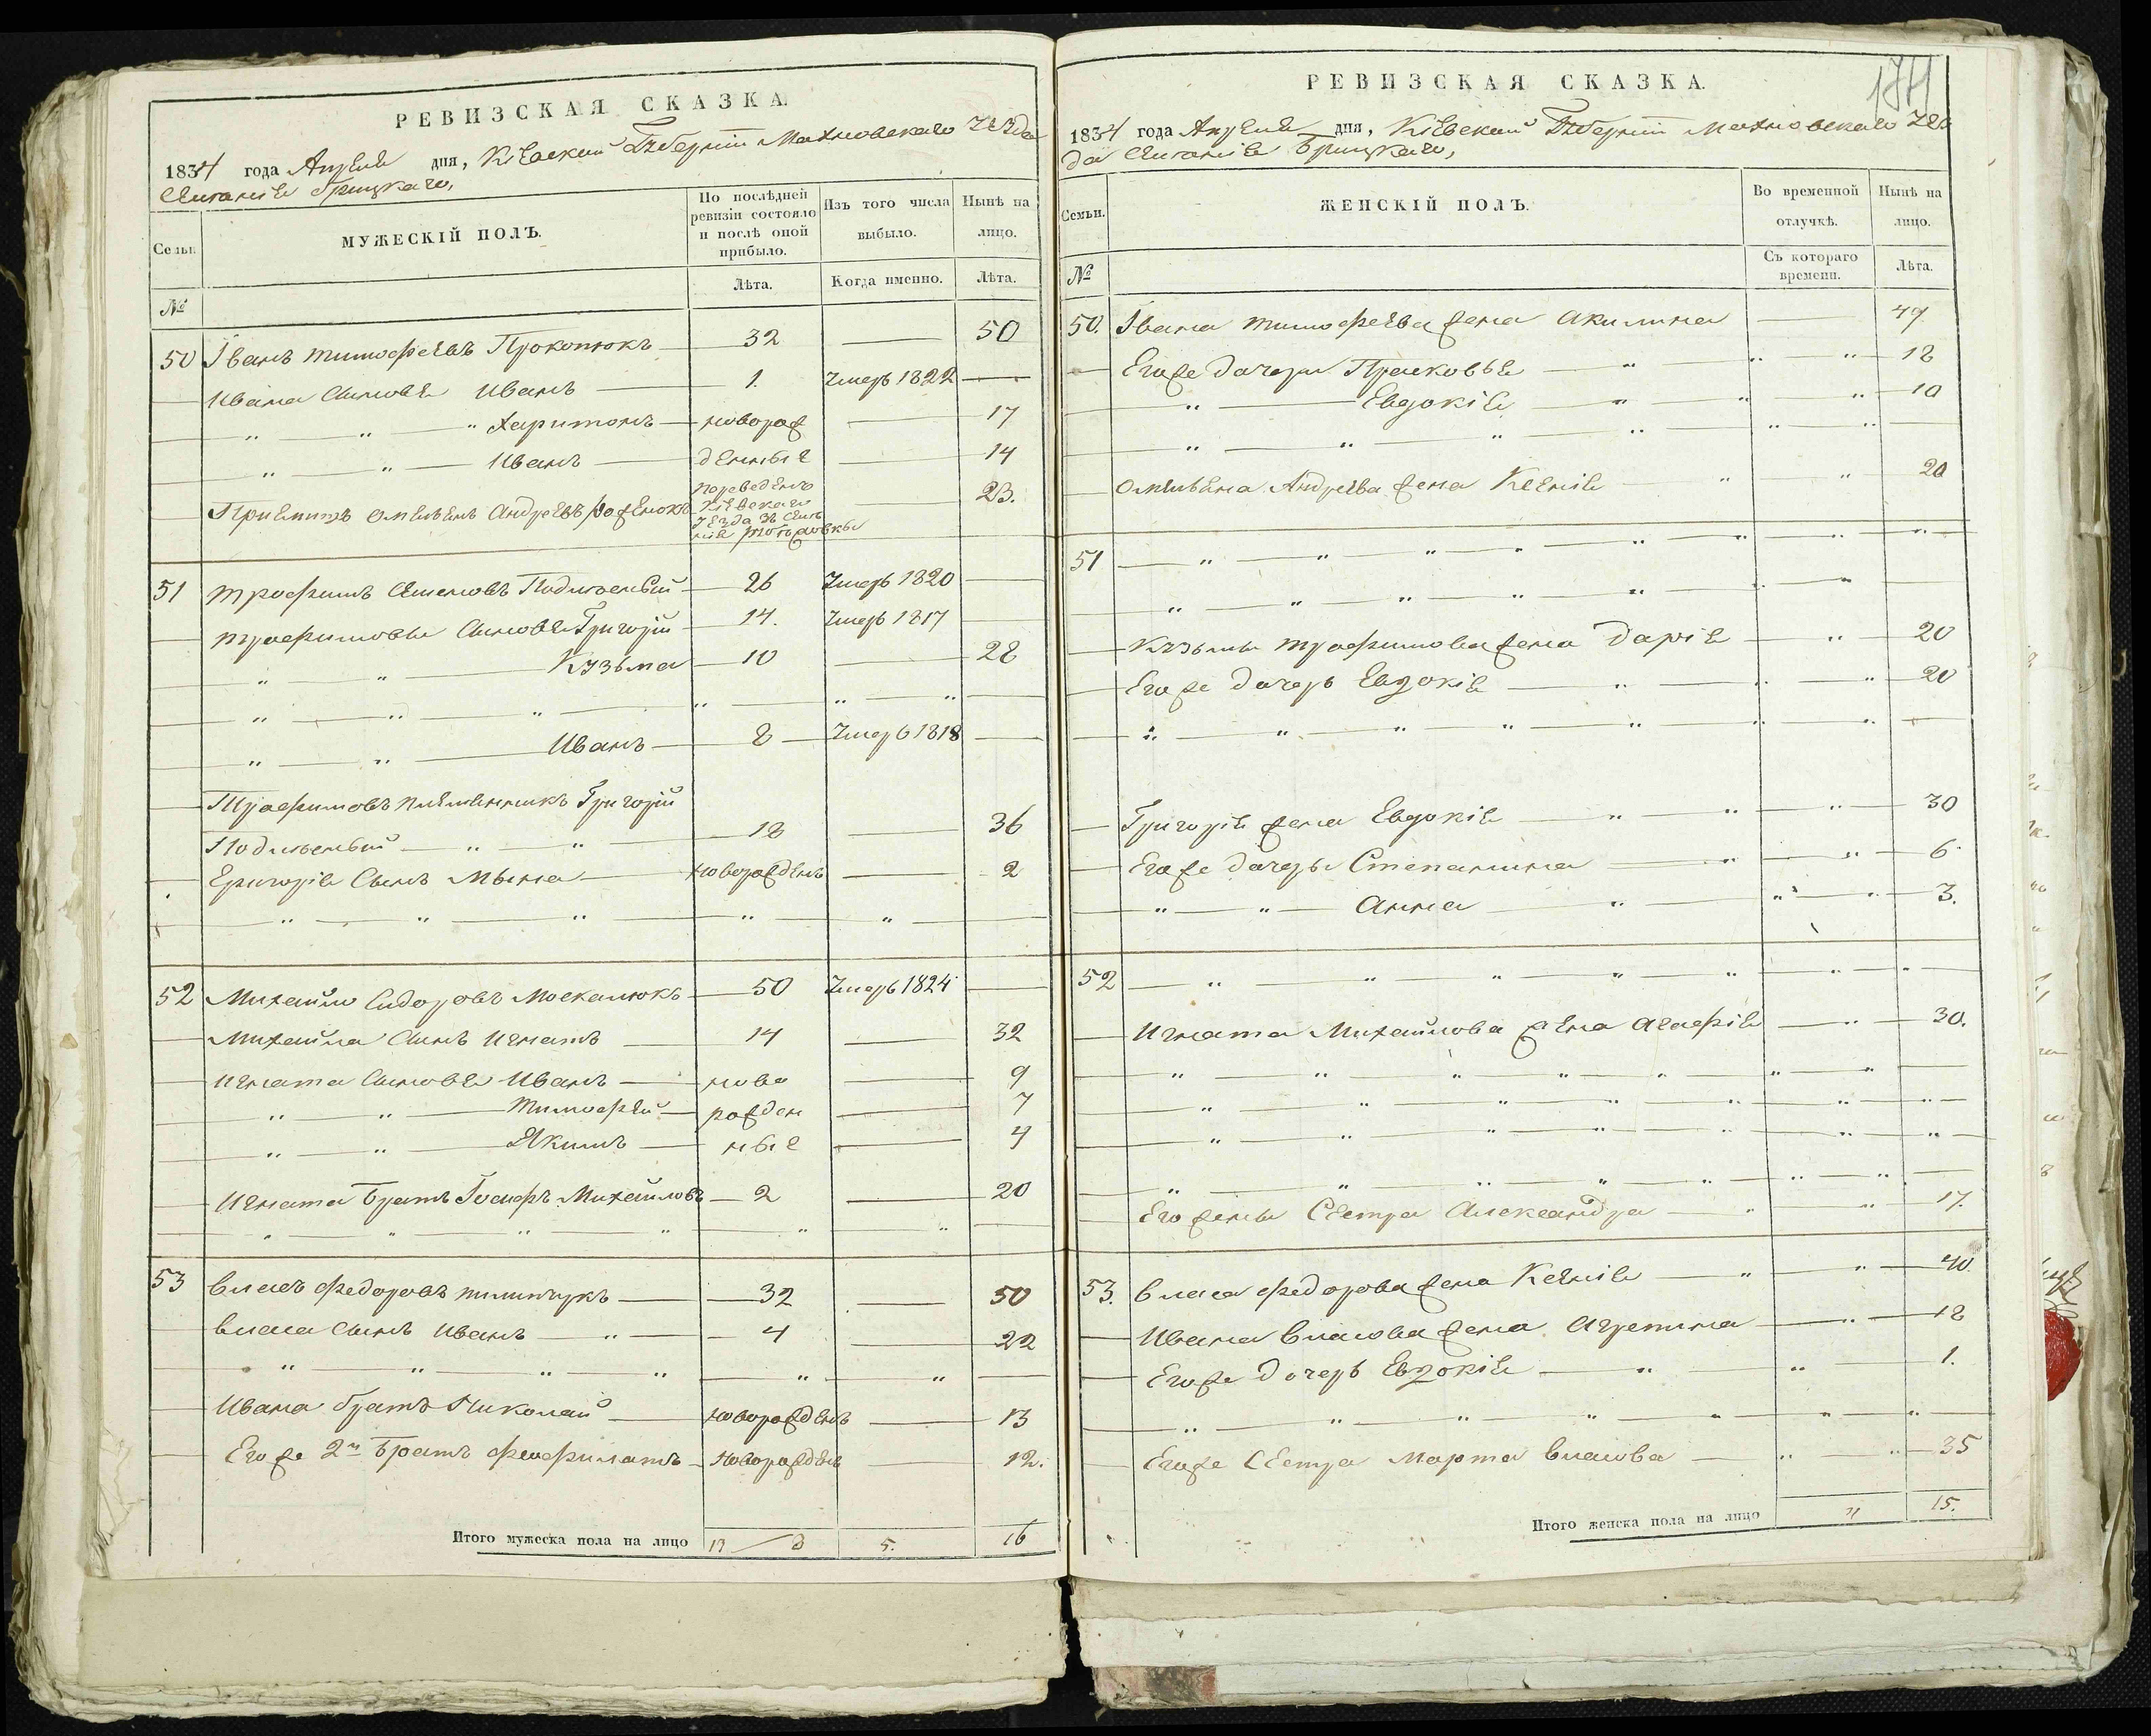 РЕВИЗСКАЯ СКАЗКА.
1834 года Апреля дня, Кіевской Губерніи Махновскаго Уезда
Селенія Брицкаго,
Семьи
МУЖЕСКІЙ ПОЛЪ.
По послѣдней ревизіи состояло и послѣ оной прибыло.
Изъ того числа выбыло.
Нынѣ на лицо.
№
Лѣта.
Когда именно.
Лѣта.
50 Іванъ тимофеевъ Прокопюкъ 32 — 50
Ивана Сыновья Иванъ 1. Умеръ 1822 —
" " " Харитонъ новорож — 17
" " Иванъ денные — 14
Приемитъ Омельянъ Андреевъ переведенъ Кіевскаго Уезда зъ Селенія — 23.
51 трофимъ Семеновъ Подлюбный 26 Умеръ 1820 —
трофимовы Сыновья Григорій 14. Умеръ 1817
" " Кузьма 10 — 28
" " " " " "
" " Иванъ 8 Умеръ 1818 —
Трофимовъ племянникъ Григорій
" " 18 — 36
Григорія Сынъ новорожденъ — 2
" " " " "
52 Михайло Сидоровъ Москалюкъ 50 Умеръ 1824 —
Михайла Сынъ Игнатъ 14 — 32
Игната Сыновья Иванъ ново — 9
" " Тимофей рожден — 7
" " Якимъ ные — 4
Игната Братъ Іосифъ Михайловъ 2 — 20
" " " " " "
53 Власъ Федоровъ 32 — 50
Власа Сынъ Иванъ " 4 — 22
" " " " " "
Ивана братъ Николай новорожденъ — 13
Его же 2й братъ Феофилатъ Новорожденъ — 12.
Итого мужеска пола на лицо 5. 16
174
РЕВИЗСКАЯ СКАЗКА.
1834 года Апреля дня, Кіевской Губерніи Махновскаго Уез
да Селенія Брицкаго,
Семьи.
ЖЕНСКІЙ ПОЛЪ.
Во временной отлучкѣ.
Нынѣ на лицо.
№
Съ котораго времени.
Лѣта.
50. Івана тимофеева жена Акилина — 49
Его же дочери Прасковья " " " 18
" Евдокія " " " 10
" " " " " "
Омельяна Андреева жена Ксенія " " 20
51 " " " " " " " "
" " " " " " "
Кузьмы трофимова жена Дарія " 20
Его же дочерь Евдокія " " " 20
" " " " " " "
Григорія жена Евдокія " " " 30
Его же дочеры Степанина " " 6
" " Анна " " " 3.
52 " " " " " " "
Игната Михайлова жена Агафія " 30.
" " " " " " "
" " " " " " "
" " " " " " "
" " " " " " "
Его жены Сестра Александра " " 17.
53. Власа Федорова жена Ксенія " " 40
Ивана Власова жена Агрепина " 18
Его же дочерь Евдокія " " 1.
" " " " " " "
Его же Сестра Марта Власова " " 35
Итого женска пола на лицо " 15.